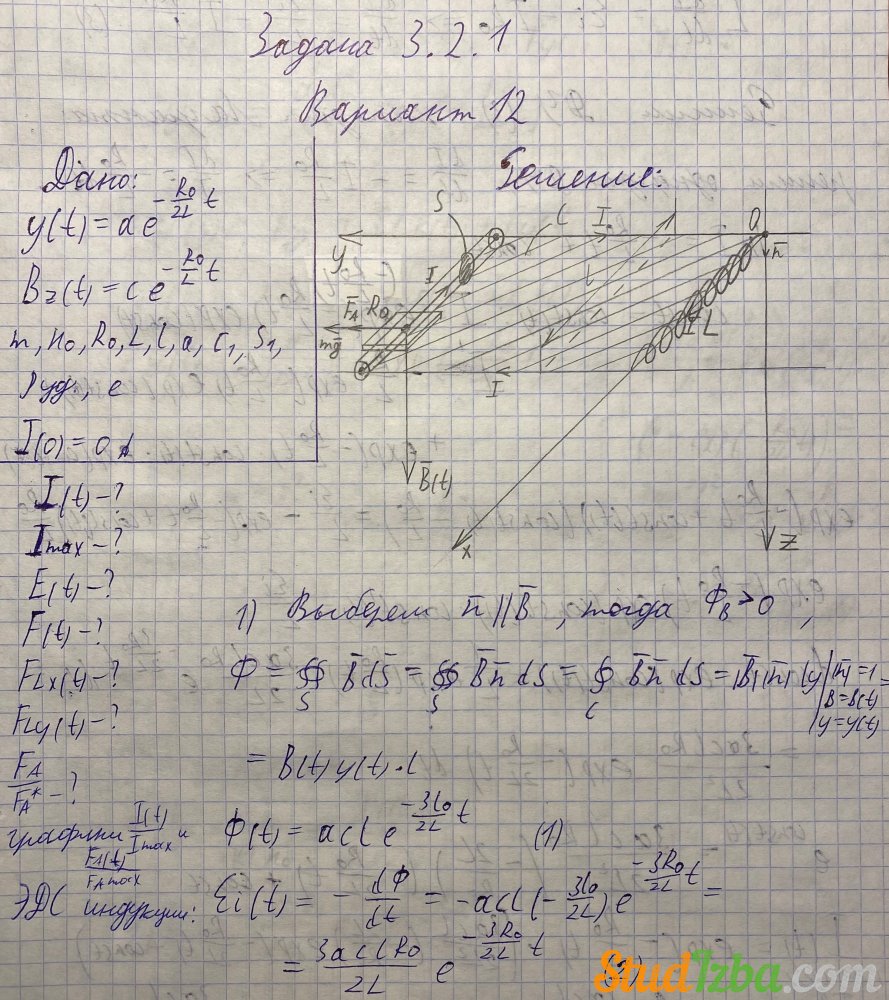 Задача 3.2.1
Вариант 12
Дано:
y(t) = a e^{-\frac{R_0}{2L}t}
B_z(t) = c e^{-\frac{R_0}{L}t}
m, n_0, R_0, L, l, a, c_1, S_1,
ρуд., e
I(0) = 0
I(t) - ?
Imax - ?
E(t) - ?
F(t) - ?
F_{Lx}(t) - ?
F_{Ly}(t) - ?
\frac{F_A}{F_A^*} - ?
графики \frac{I(t)}{I_{max}} и
\frac{F_A(t)}{F_{Amax}}
Решение:
S
C
I
O
y
n̄
I
l
F̄_A
R_0
mḡ
L
I
B̄(t)
x
z
1) Выберем n̄ || B̄, тогда Φ_B > 0;
Φ = ∯_S B̄dS̄ = ∯_S B̄n̄ dS = ∮_C B̄n̄ dS = |B̄| |n̄| ly | |n̄| = 1 =
B = B(t)
y = y(t)
= B(t) y(t) · l
Φ(t) = acl e^{-\frac{3l_0}{2L}t} (1)
ЭДС индукции: Ɛi(t) = -\frac{dΦ}{dt} = -acl (-\frac{3l_0}{2L}) e^{-\frac{3R_0}{2L}t} =
= \frac{3aclR_0}{2L} e^{-\frac{3R_0}{2L}t} (2)
StudIzba.com